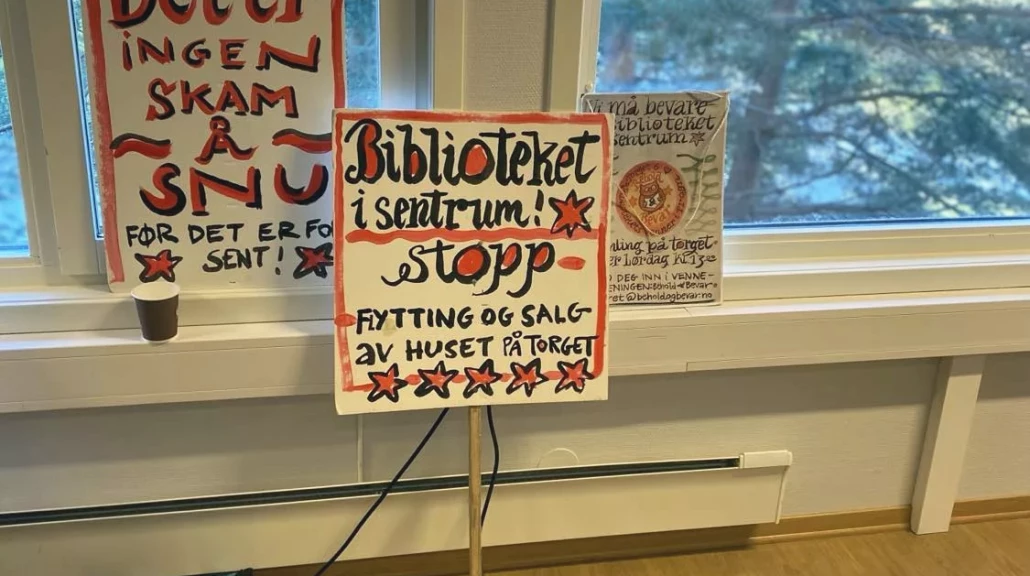 Det er
iNGEN
SKAM
Å
SNU
FØR DET ER FO
SENT!
Biblioteket
i sentrum!
stopp
FLYTTING OG SALG
AV HUSET PÅ TORGET
Vi må bevare
biblioteket
sentrum
ling på torget
er lørdag kl.13
DEG INN i VENNE-
ENINGEN: Behold & Bevar
ost@beholdogbevar.no